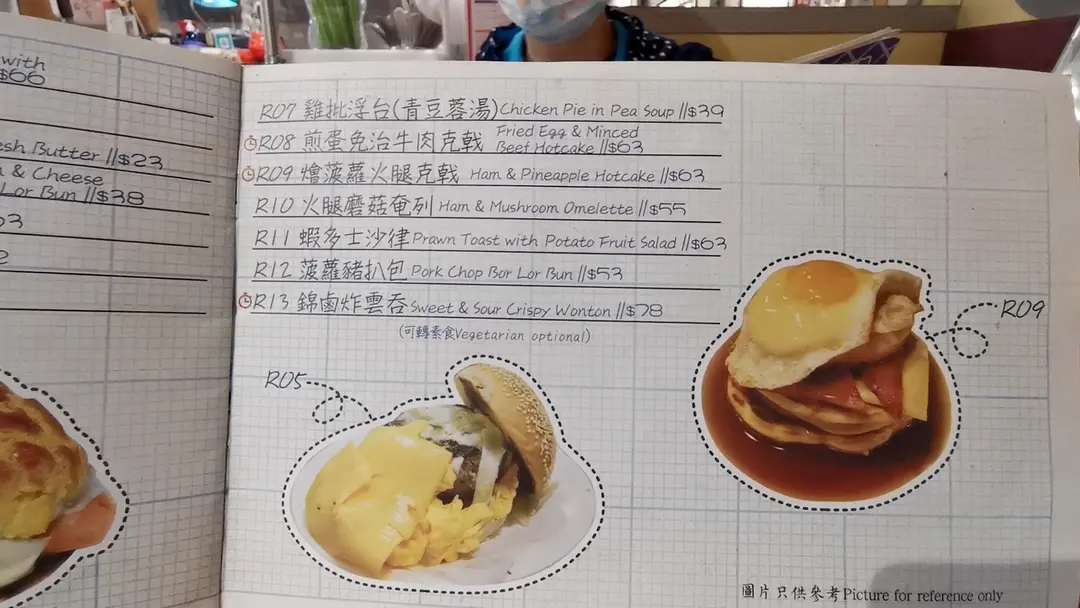 with
$66
esh Butter //$23
& Cheese
Lor Bun //$38
R07 雞批浮台(青豆蓉湯) Chicken Pie in Pea Soup //$39
R08 煎蛋免治牛肉克戟 Fried Egg & Minced
Beef Hotcake //$63
R09 燴菠蘿火腿克戟 Ham & Pineapple Hotcake //$63
R10 火腿磨菇奄列 Ham & Mushroom Omelette //$55
R11 蝦多士沙律 Prawn Toast with Potato Fruit Salad //$63
R12 菠蘿豬扒包 Pork Chop Bor Lor Bun //$53
R13 錦鹵炸雲吞 Sweet & Sour Crispy Wonton //$78
(可轉素食Vegetarian optional)
R05
R09
圖片只供參考Picture for reference only